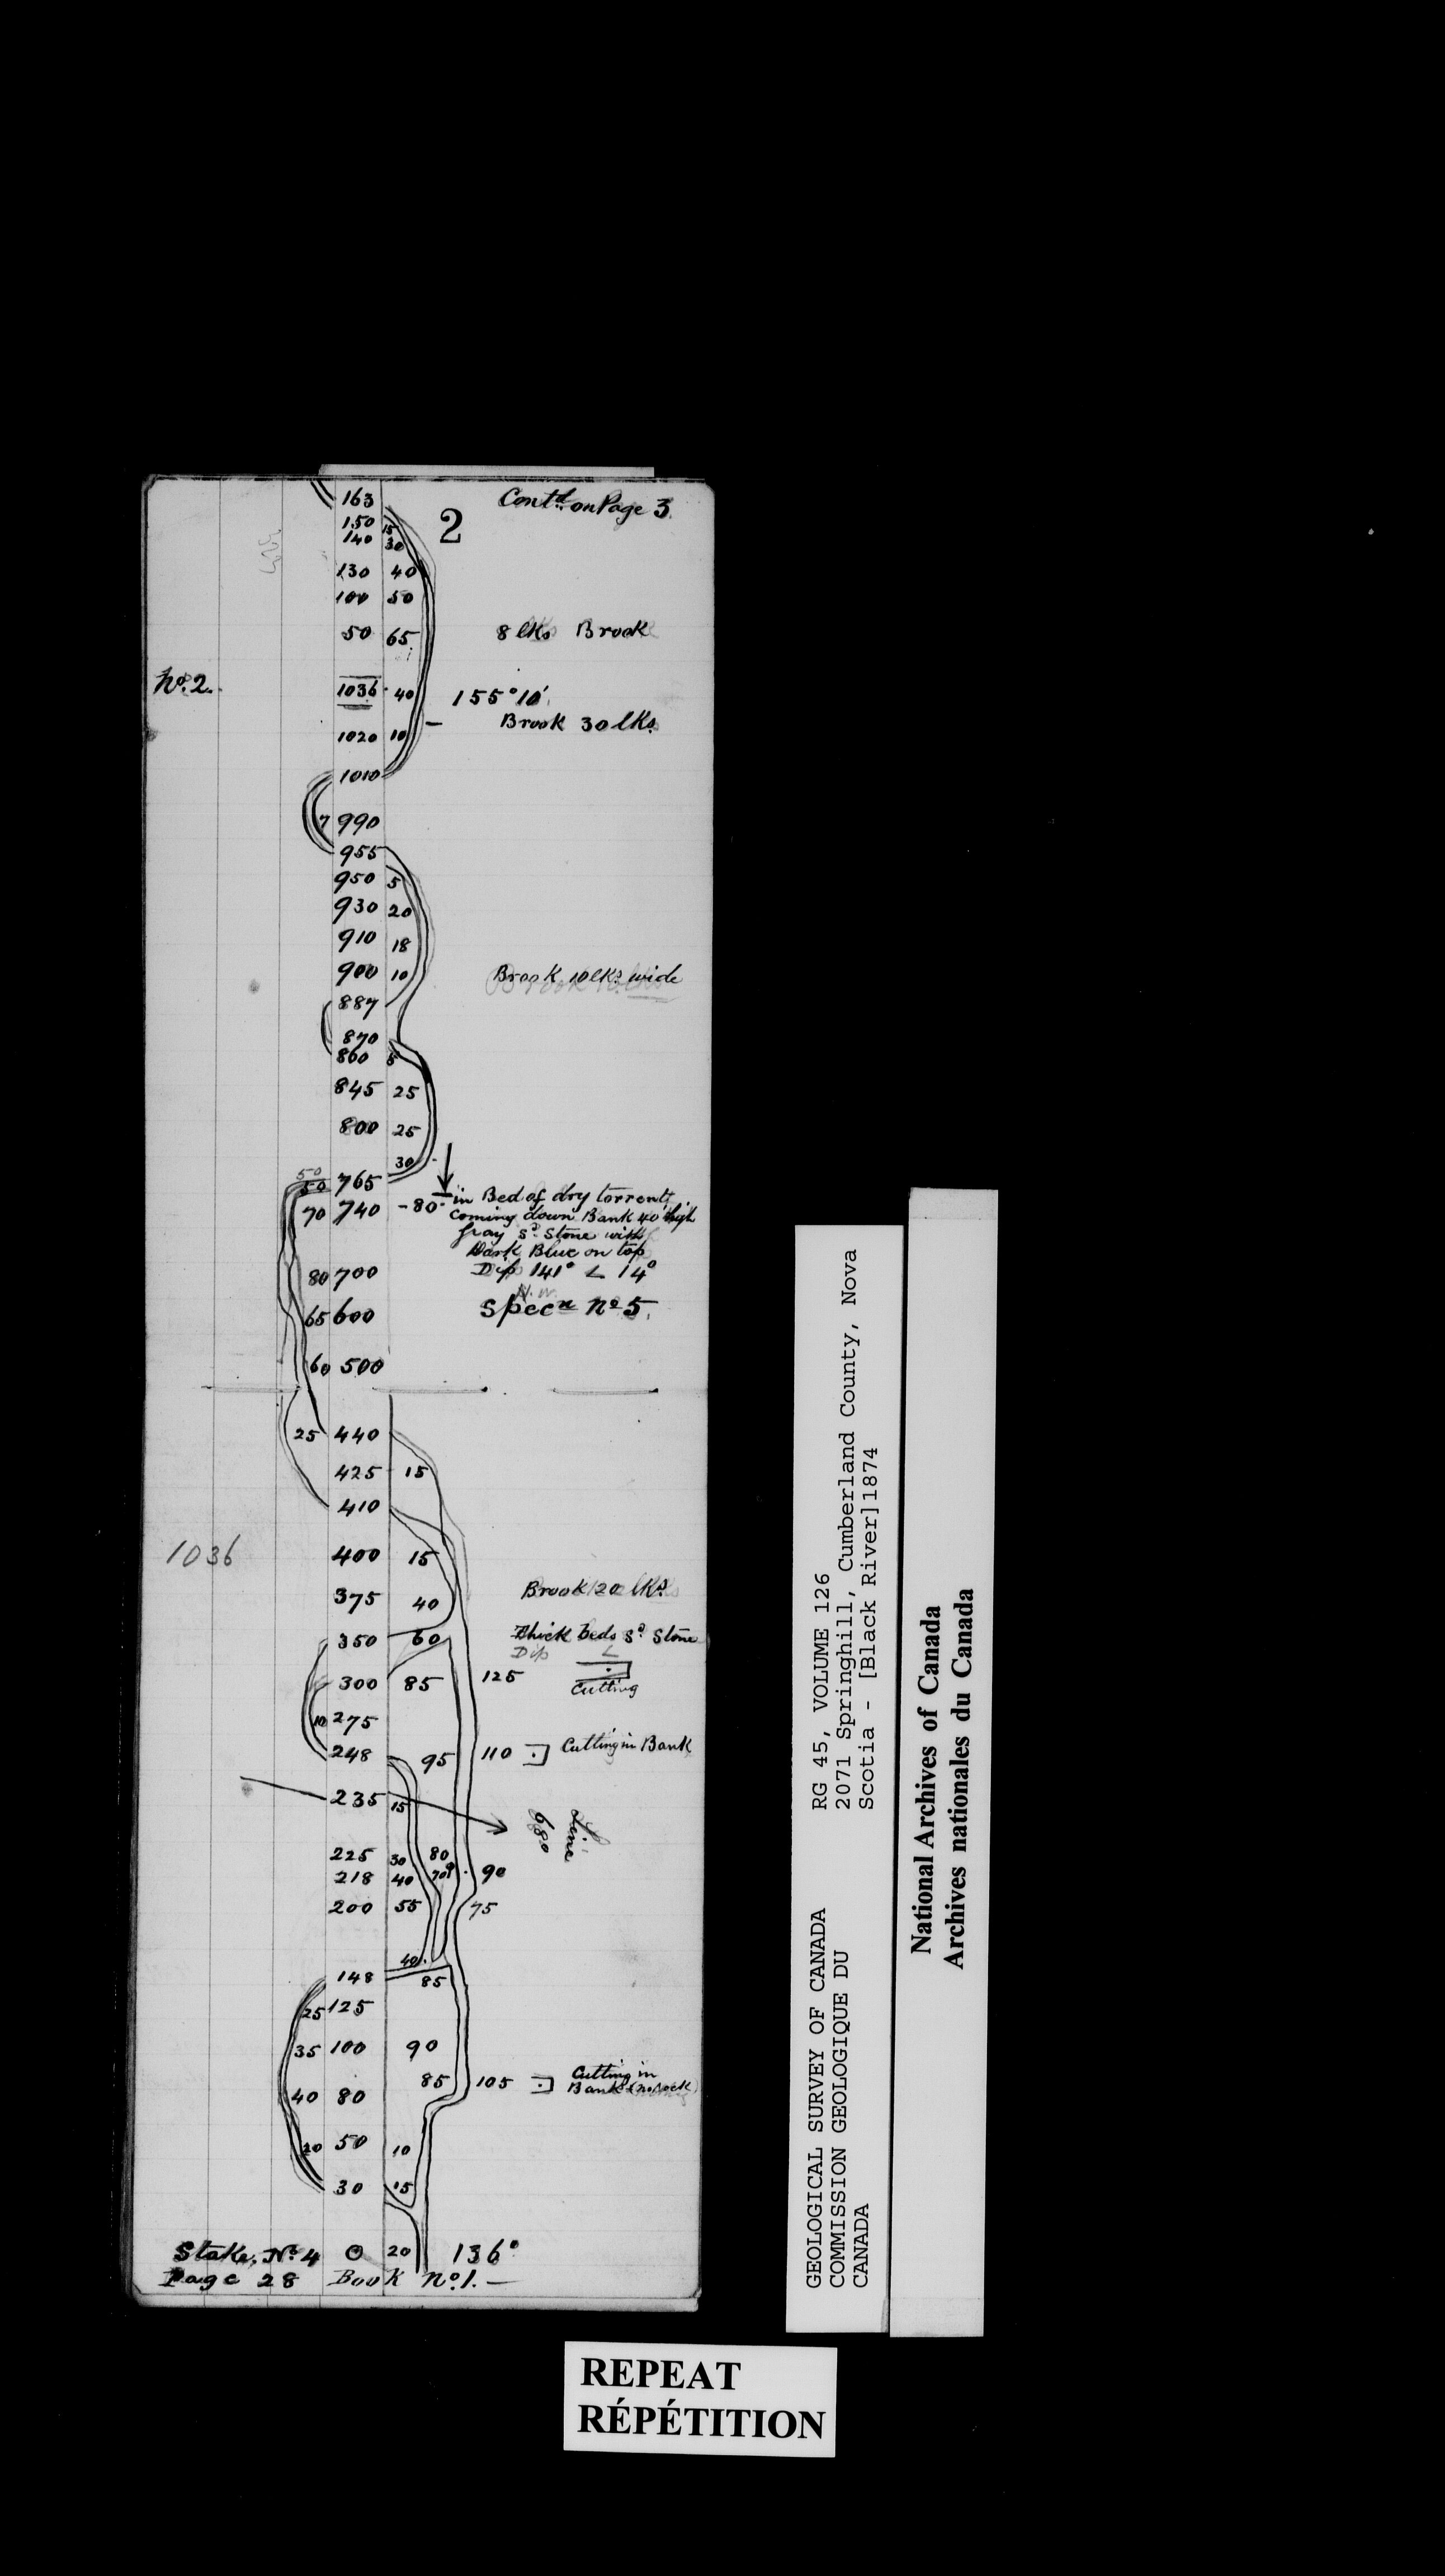 163 Contd. on Page 3
2
150 15
140 30
130 40
100 50
50 65 8 lks Brook
No. 2. 1036 40 155° 10'
Brook 30 lks.
1020 10
1010
7 990
955
950 5
930 20
910 18
900 10 Brook 10 lks wide
887
870
860 8
845 25
800 25
30
50
50 765
in Bed of dry torrent
70 740 -80- coming down Bank 40 high
Gray Sd. Stone with
Dark Blue on top
80 700 Dip 141° ∠ 14°
N. W.
65 600 Specn No 5.
60 500
25 440
425 15
410
1036 400 15
375 40 Brook 20 lks
350 60 Thick beds Sd. Stone
Dip ∠
300 85 125
Cutting
10 275
248 95 110 Cutting in Bank
235 15
Line
680
225 30 80
218 40 70 90
200 55 75
40
148 85
25 125
35 100 90
85 105 Cutting in
40 80 Bank (no rock
20 50 10
30 15
Stake, No. 4 0 20 136°
Page 28 Book No. 1. —
GEOLOGICAL SURVEY OF CANADA RG 45, VOLUME 126
COMMISSION GEOLOGIQUE DU 2071 Springhill, Cumberland County, Nova
CANADA Scotia - [Black River]1874
National Archives of Canada
Archives nationales du Canada
REPEAT
RÉPÉTITION